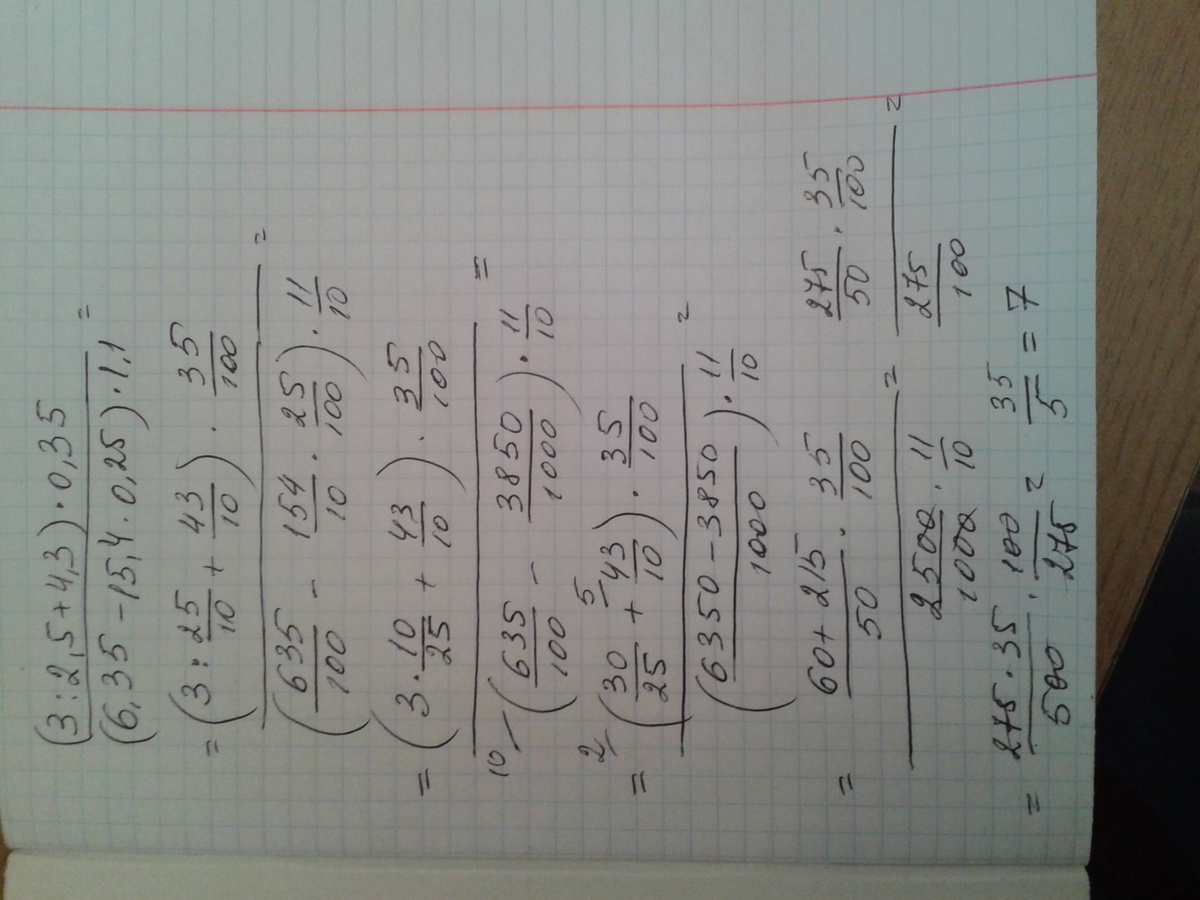 (3:2,5+4,3)·0,35 =
(6,35-15,4·0,25)·1,1
= (3:25/10+43/10)·35/100 =
(635/100-154/10·25/100)·11/10
= (3·10/25+43/10)·35/100 =
10 (635/100-3850/1000)·11/10
2 5
= (30/25+43/10)·35/100 =
(6350-3850/1000)·11/10
= 60+215/50·35/100 = 275/50·35/100 =
2500/1000·11/10 275/100
= 275·35/500·100/275=35/5=7